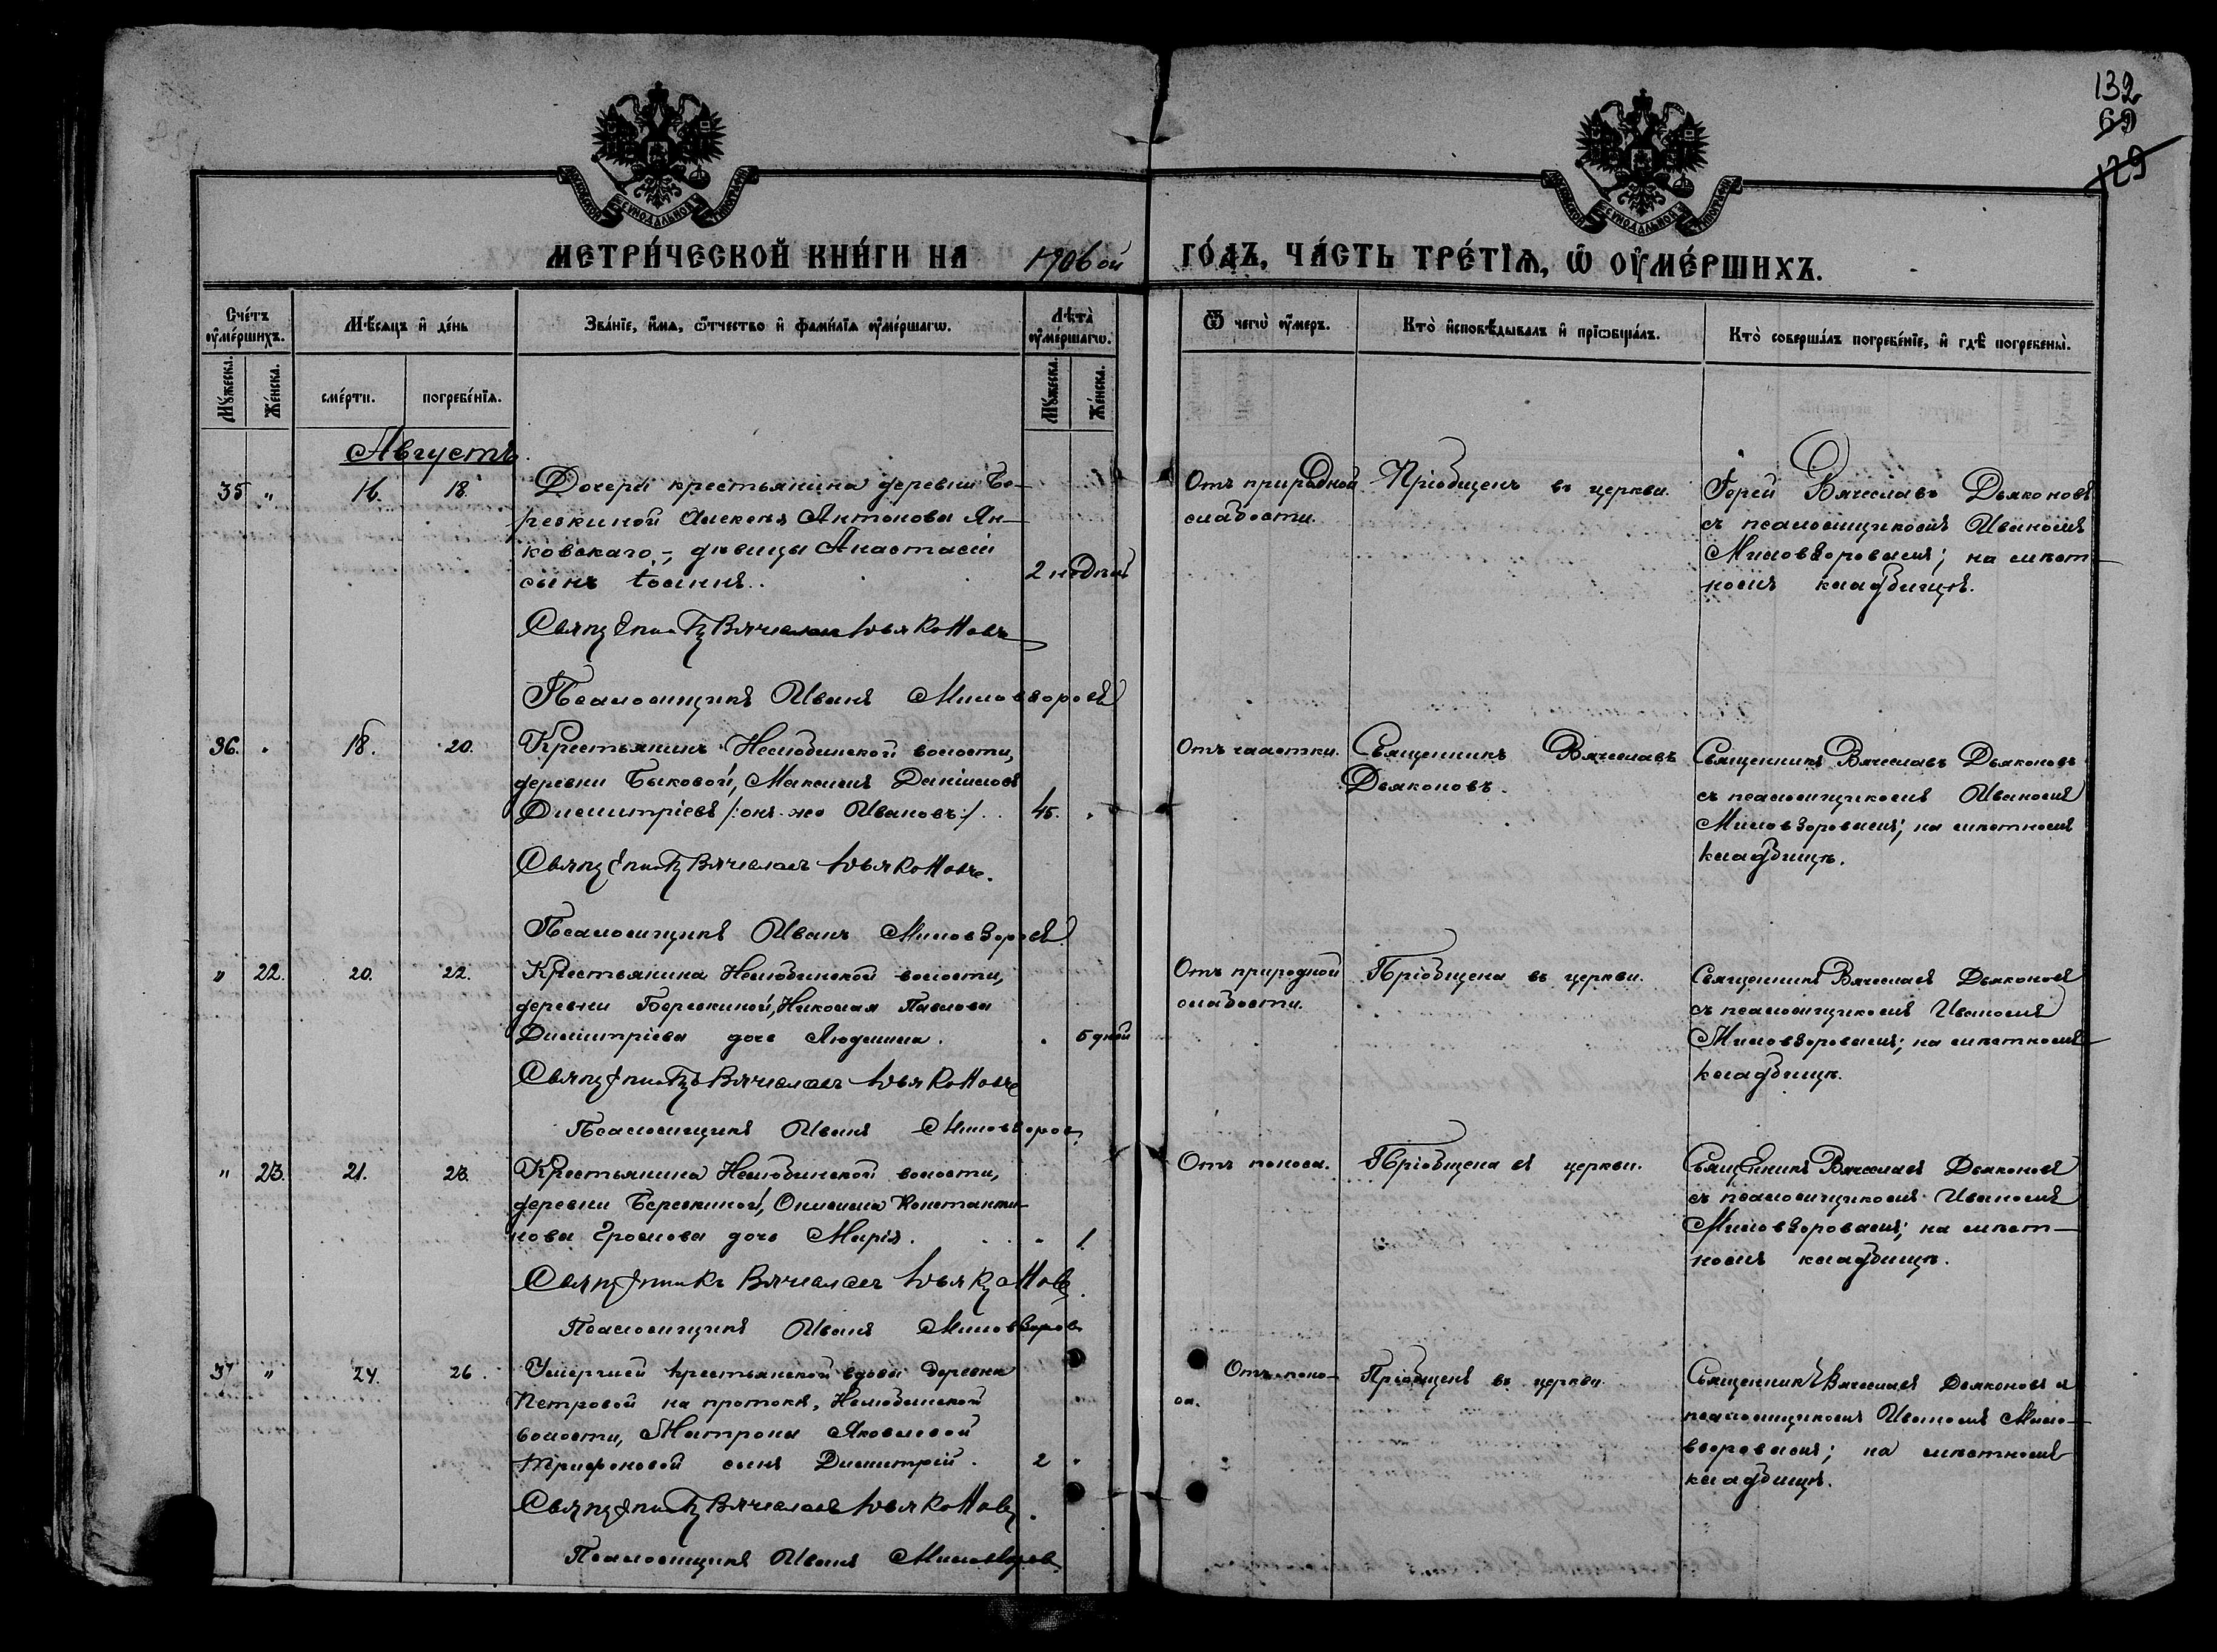 132
69
129
МЕТРИ́ЧЕСКОЙ КНИ́ГИ НА 1906 ой ГО́ДЪ, ЧА́СТЬ ТРЕ́ТІѦ, Ѿ ОУМЕ́РШИХЪ.
Сче́тъ оуме́ршихъ.
Мѣ́сѧцъ и де́нь
Зва́ніе, и́мѧ, ѻ́тчество и фами́лїѧ оуме́ршагѡ.
Лѣта̀ оуме́ршагѡ.
Ѿ чегѡ̀ оу́меръ.
Кто̀ и҆сповѣ́дывалъ и҆ прїѡбща́лъ.
Кто̀ соверша́лъ погребе́нїе, и҆ гдѣ̀ погребены̀.
Мꙋ́жеска. Же́нска.
сме́рти. погребе́нїѧ.
Мꙋ́жеска. Же́нска.
Августъ.
35 " 16. 18.
Дочери крестьянина деревни Бе-
резкиной Алексѣя Антонова Ян-
ковскаго, - дѣвицы Анастасіи
сынъ Іоаннъ. 2 недѣли
Священникъ Вячеславъ Дьяконовъ
Псаломщикъ Иванъ Миловзоровъ
Отъ природной
слабости.
Пріобщенъ въ церкви.
Іерей Вячеславъ Дьяконовъ
съ псаломщикомъ Иваномъ
Миловзоровымъ; на мѣст-
номъ кладбищѣ.
36. . 18. 20.
Крестьянинъ Нелюбинской волости,
деревни Быковой, Максимъ Даніиловъ
Димитріевъ /:онъ же Ивановъ:/. 45. .
Священникъ Вячеславъ Дьяконовъ.
Псаломщикъ Иванъ Миловзоровъ
Отъ чахотки.
Священникъ Вячеславъ
Дьяконовъ.
Священникъ Вячеславъ Дьяконовъ
съ псаломщикомъ Иваномъ
Миловзоровымъ; на мѣстномъ
кладбищѣ.
" 22. 20. 22.
Крестьянина Нелюбинской волости,
деревни Березкиной, Николая Павлова
Димитріева дочь Людмила. . 5 дней
Священникъ Вячеславъ Дьяконовъ
Псаломщикъ Иванъ Миловзоровъ
Отъ природной
слабости.
Пріобщена въ церкви.
Священникъ Вячеславъ Дьяконовъ
съ псаломщикомъ Иваномъ
Миловзоровымъ; на мѣстномъ
кладбищѣ.
" 23. 21. 23.
Крестьянина Нелюбинской волости,
деревни Березкиной, Онисима Константи-
нова дочь Марія. " 1.
Священникъ Вячеславъ Дьяконовъ.
Псаломщикъ Иванъ Миловзоровъ
Отъ поноса.
Пріобщена въ церкви.
Священникъ Вячеславъ Дьяконовъ
съ псаломщикомъ Иваномъ
Миловзоровымъ; на мѣст-
номъ кладбищѣ.
37 " 24. 26.
Умершей крестьянской вдовы деревни
Петровой на протокѣ, Нелюбинской
волости, Матроны Яковлевой
Трифоновой сынъ Димитрій. 2 .
Священникъ Вячеславъ Дьяконовъ.
Псаломщикъ Иванъ Миловзоровъ
Отъ поно-
са.
Пріобщенъ въ церкви.
Священникъ Вячеславъ Дьяконовъ съ
псаломщикомъ Иваномъ Мило-
взоровымъ; на мѣстномъ
кладбищѣ.